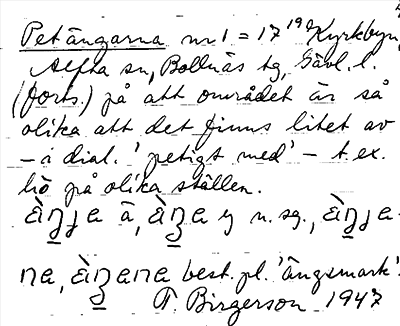 4
Petängarna nr 1 = 17 Kyrkbyn,
Alfta sn, Bollnäs tg, Gävl. l.
(forts.) på att området är så
olika att det finns litet av
– i dial. 'petigt med' – t. ex.
hö på olika ställen.
ä, n. sg.,
na, best. pl. 'ängsmark'.
T. Birgerson 1947